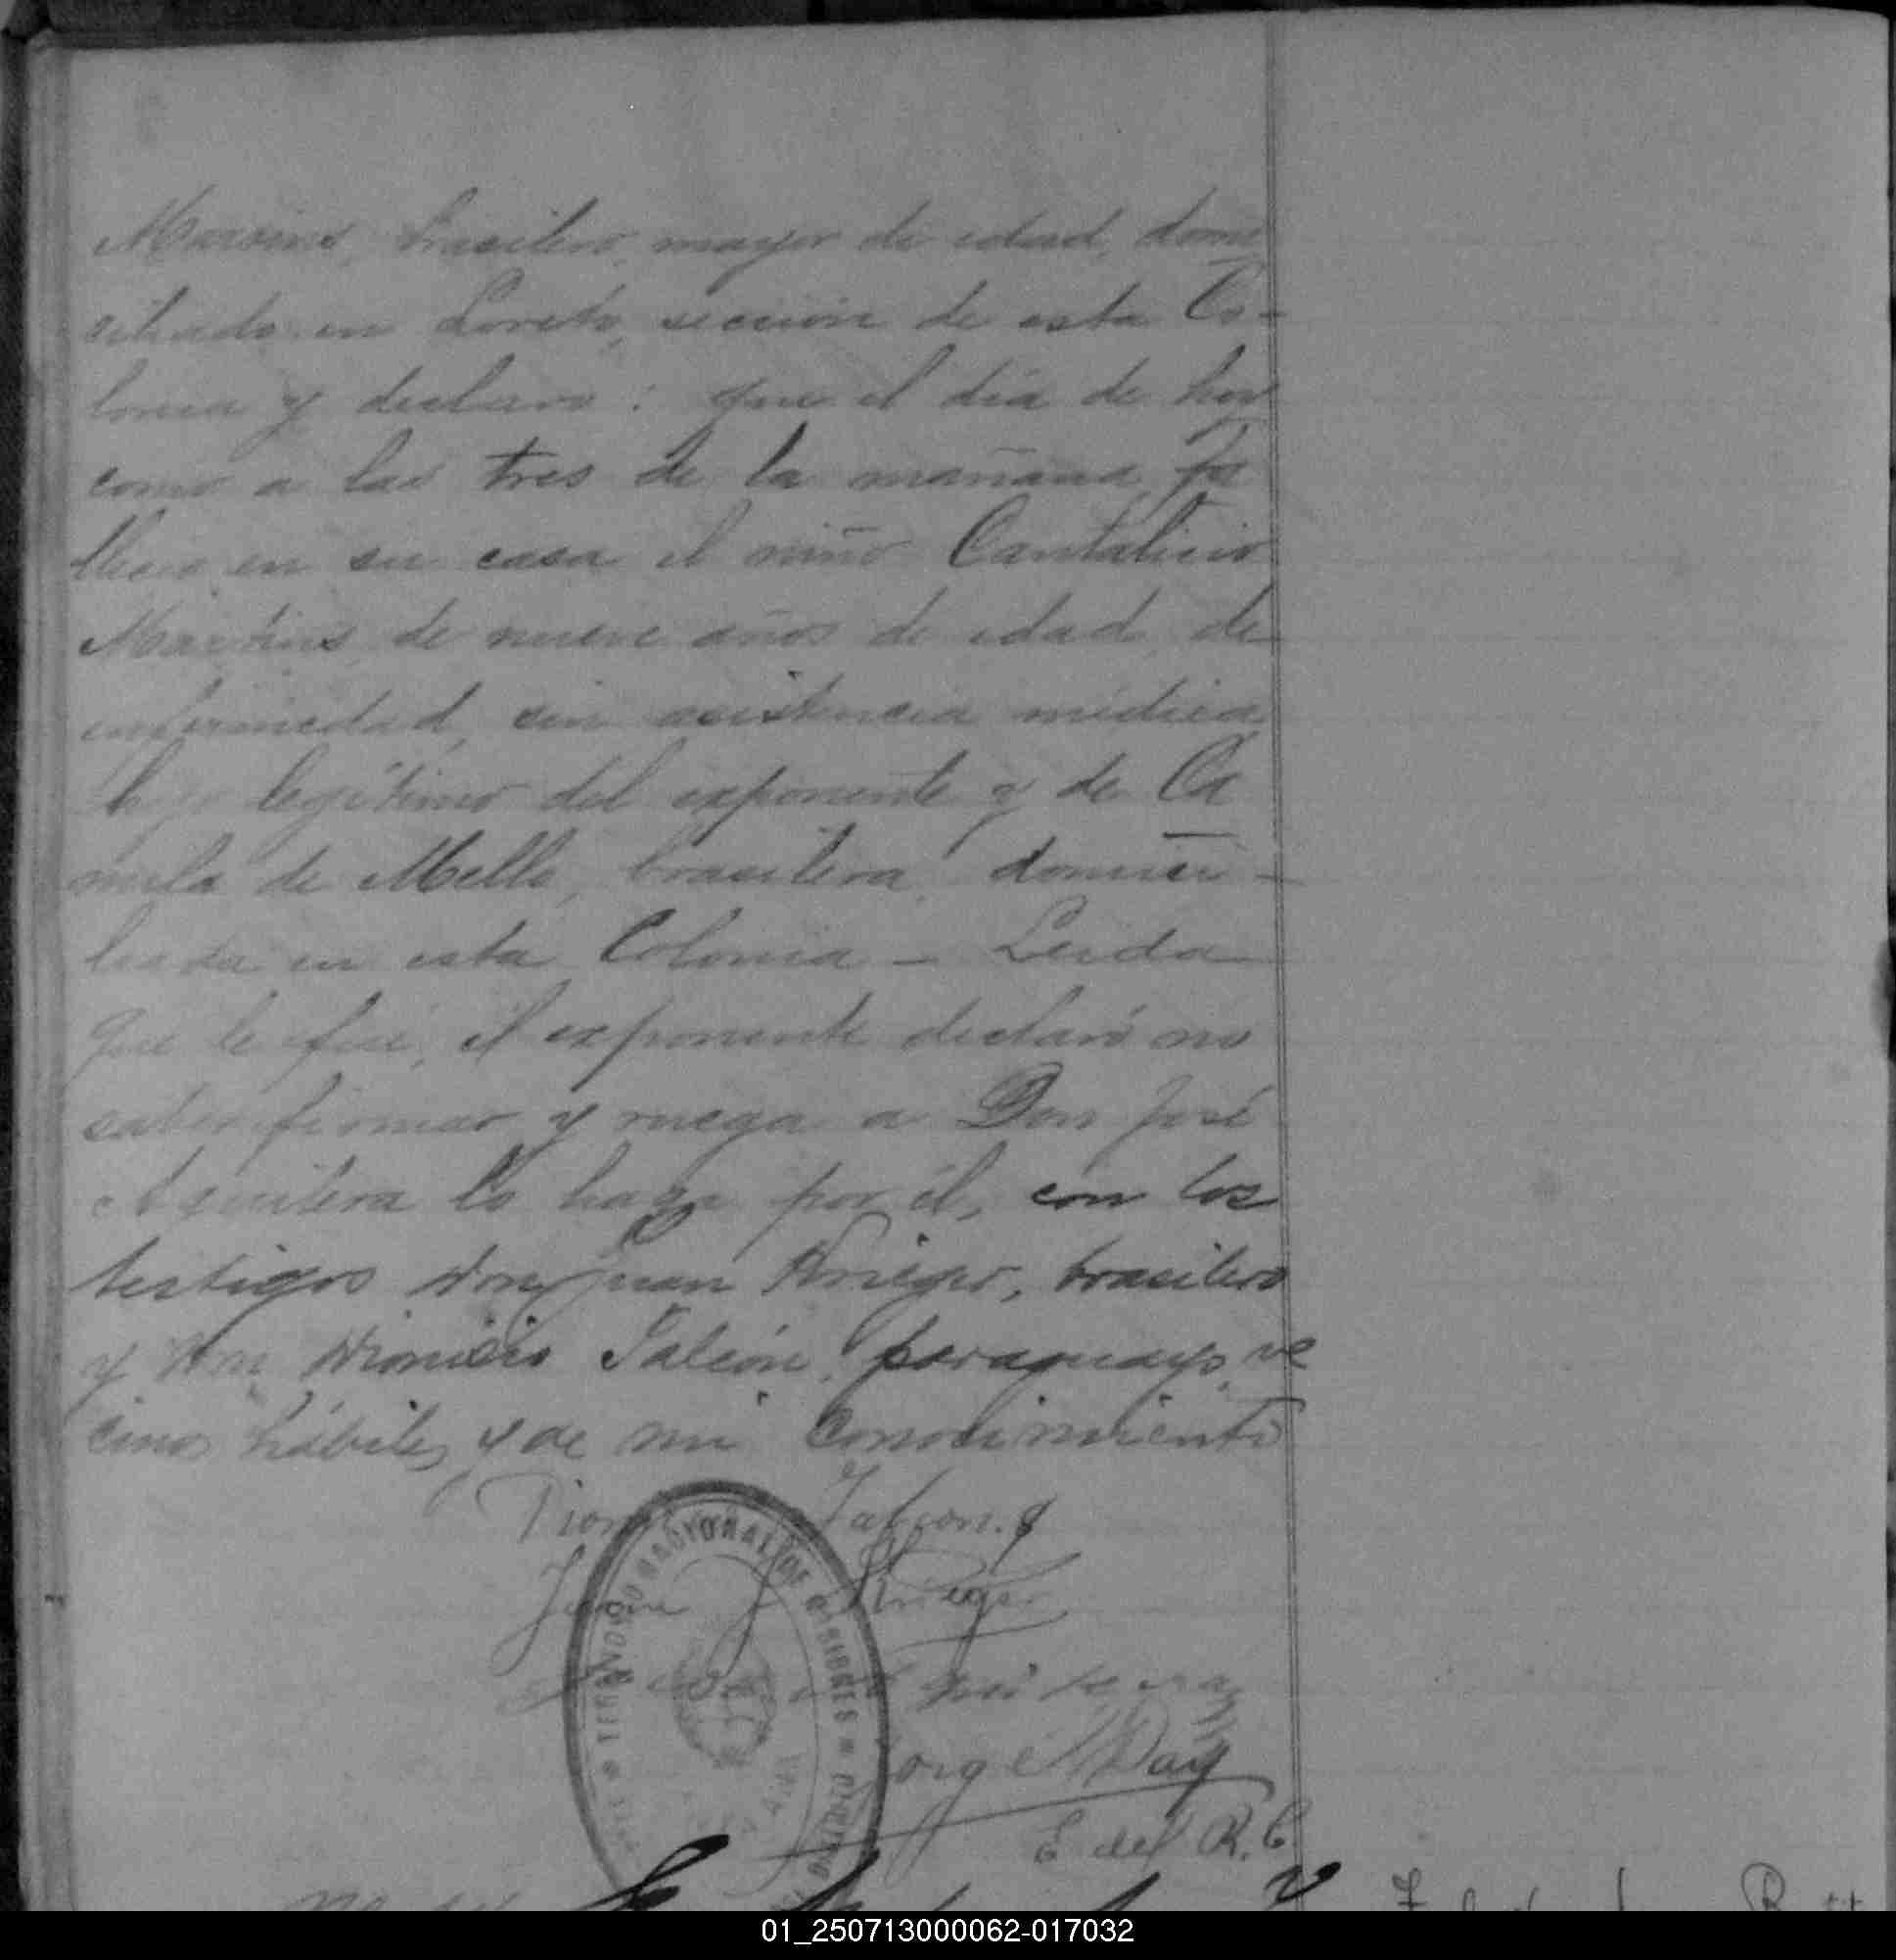 Martins, brasilero, mayor de edad, domi
ciliado en Loreto, sección de esta Co-
lonia y declaro: que el día de hoy
como a las tres de la mañana, fa
lleció en su casa el niño Cantalicio
Martins, de nueve años de edad, de
enfermedad, sin asistencia médica,
hijo legítimo del exponente y de Ca
mila de Mello, brasilera, domici-
leada en esta Colonia - Leida
que le fué, el exponente declaró no
saber firmar y ruega a Don José
Aguilera lo haga por él, con los
testigos Don Juan Krieger, brasilero
y Don Dionisio Falcón, paraguayo, ve
cinos hábiles y de mi conocimiento
Falcon.
Juan Krieger
Jorge Day
E del R.C.
01_250713000062-017032